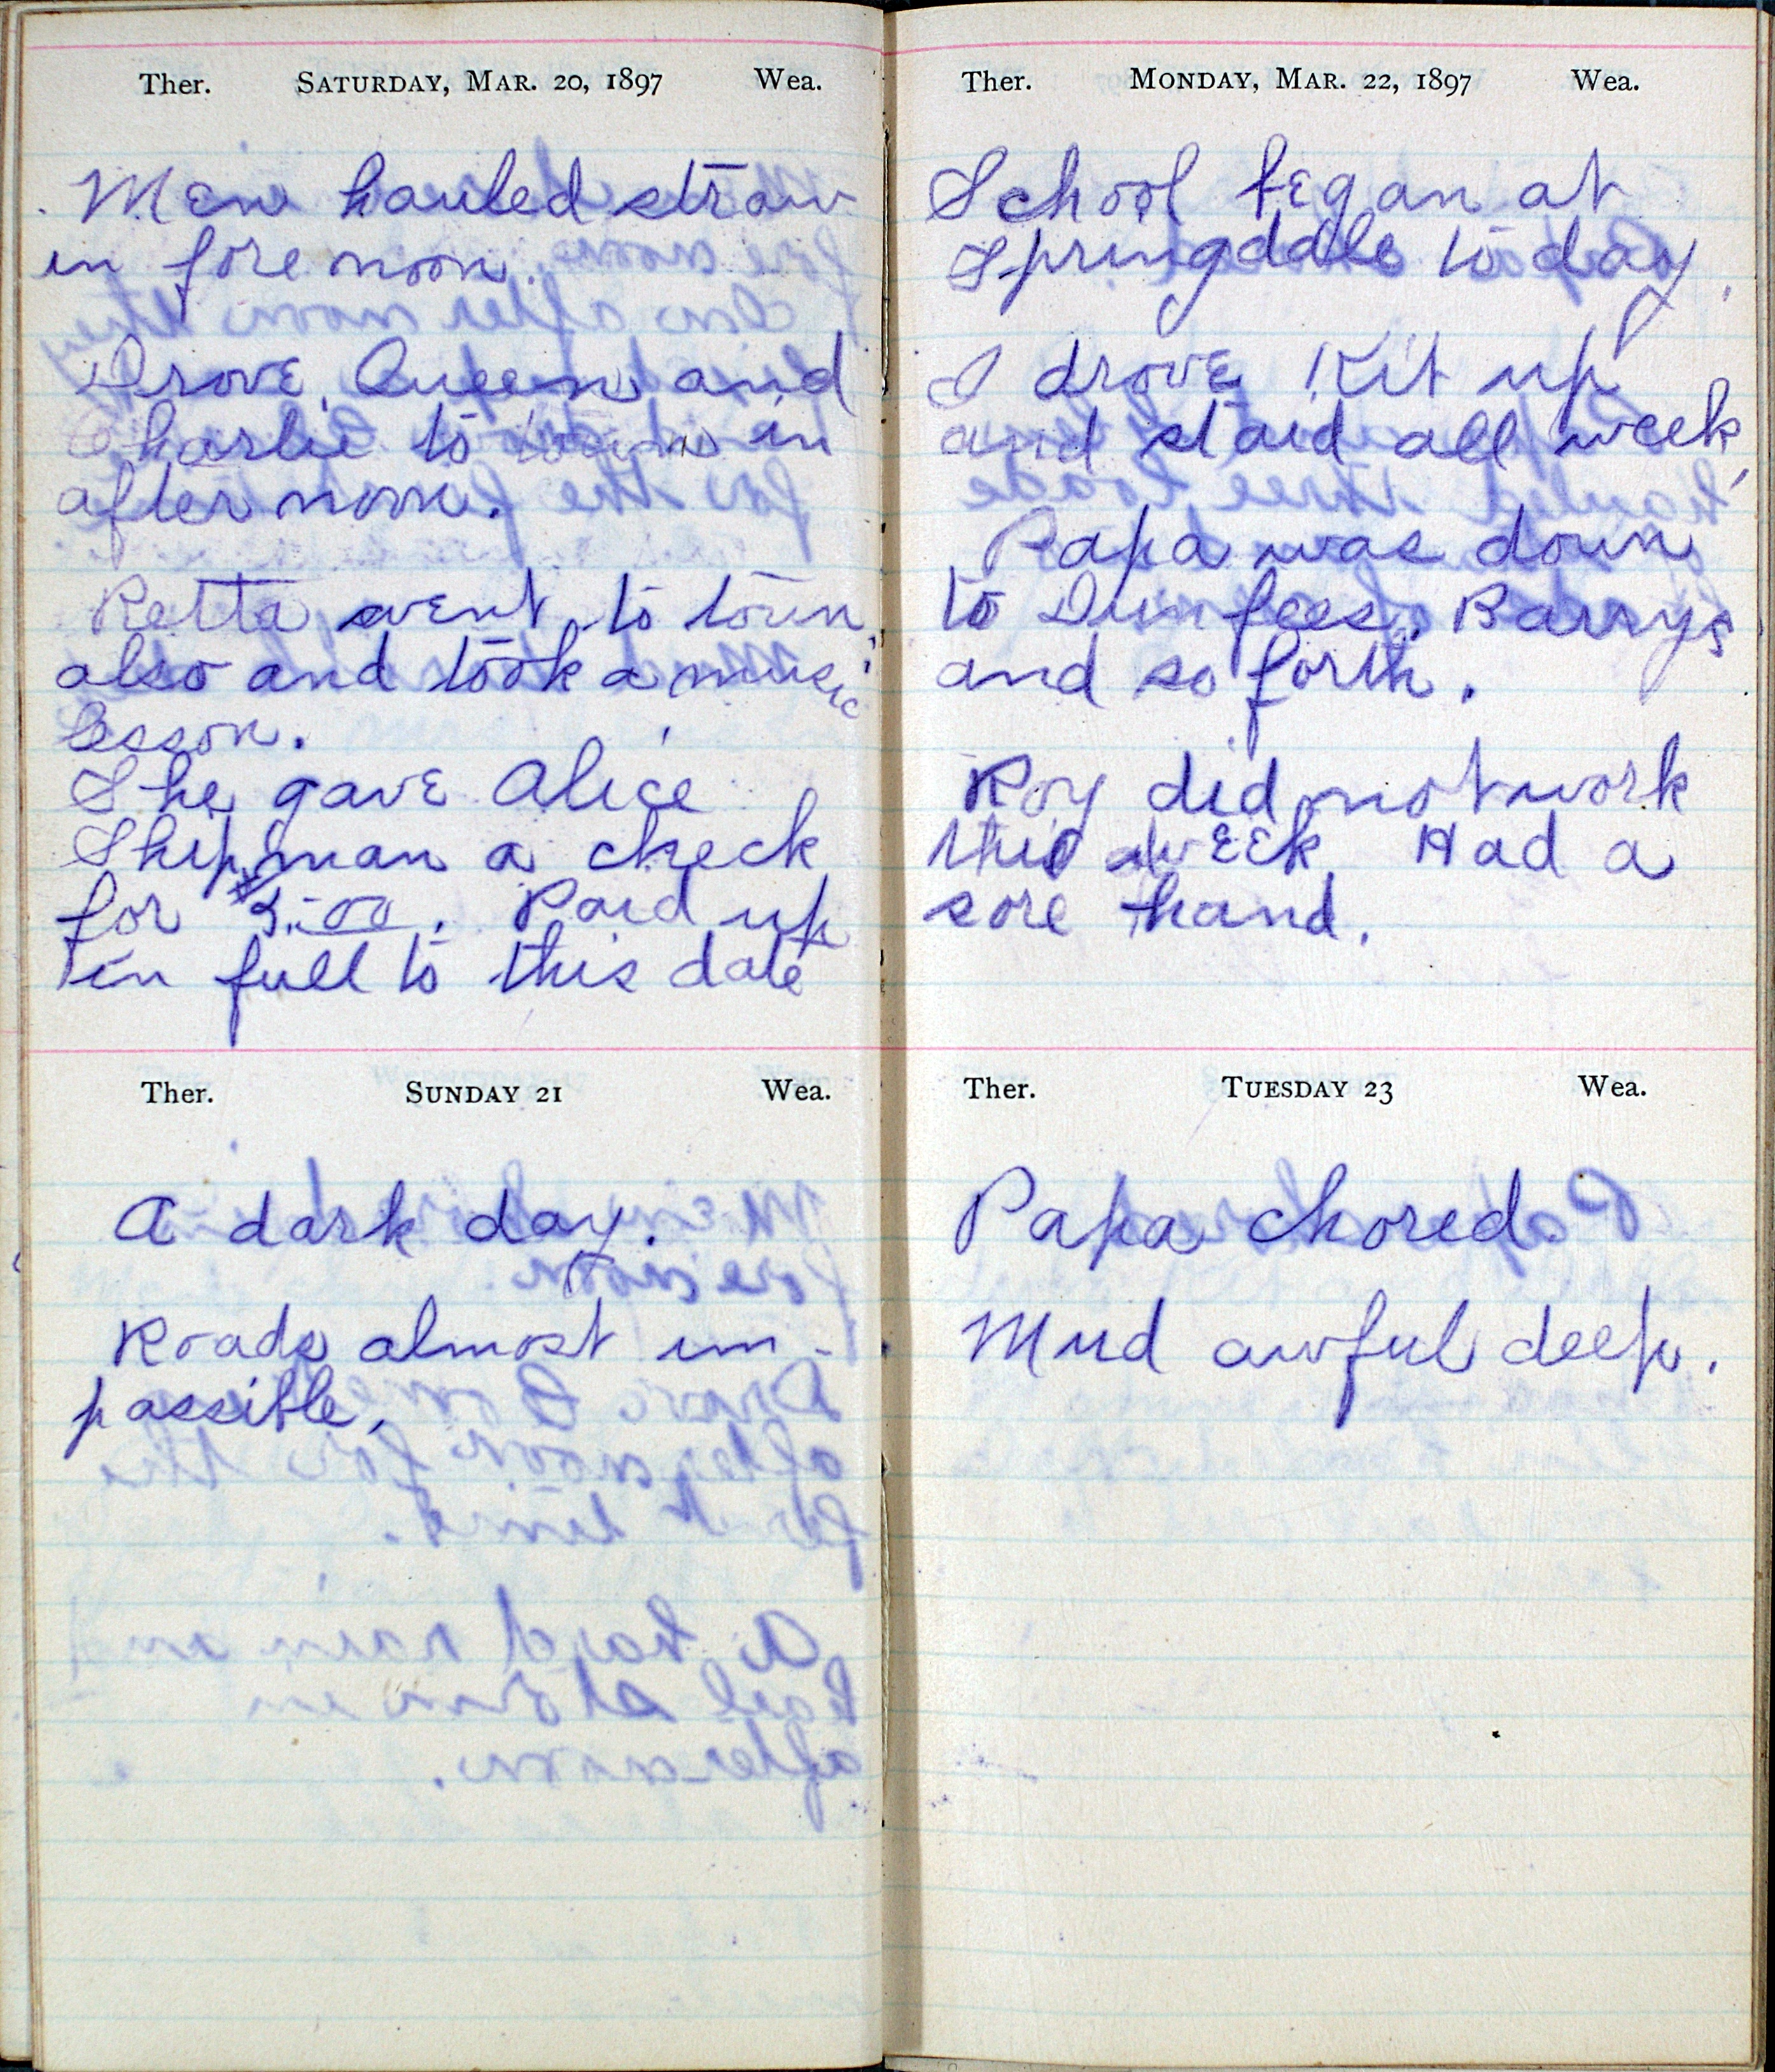 Ther. SATURDAY, MAR. 20, 1897 Wea.
Men hauled straw
in forenoon.
Drove Queen and
Charlie to town in
afternoon.
Retta went to town
also and took a music
lesson.
She gave Alice
Shipman a check
for $5.00. Paid up
in full to this date
Ther. SUNDAY 21 Wea.
A dark day.
Roads almost im-
passible.
Ther. MONDAY, MAR. 22, 1897 Wea.
School began at
Springdale to day.
I drove Kit up
and staid all week,
Papa was down
to Dumfees, Barrys
and so forth.
Roy did not work
this week Had a
sore hand.
Ther. TUESDAY 23 Wea.
Papa chored.
Mud awful deep.